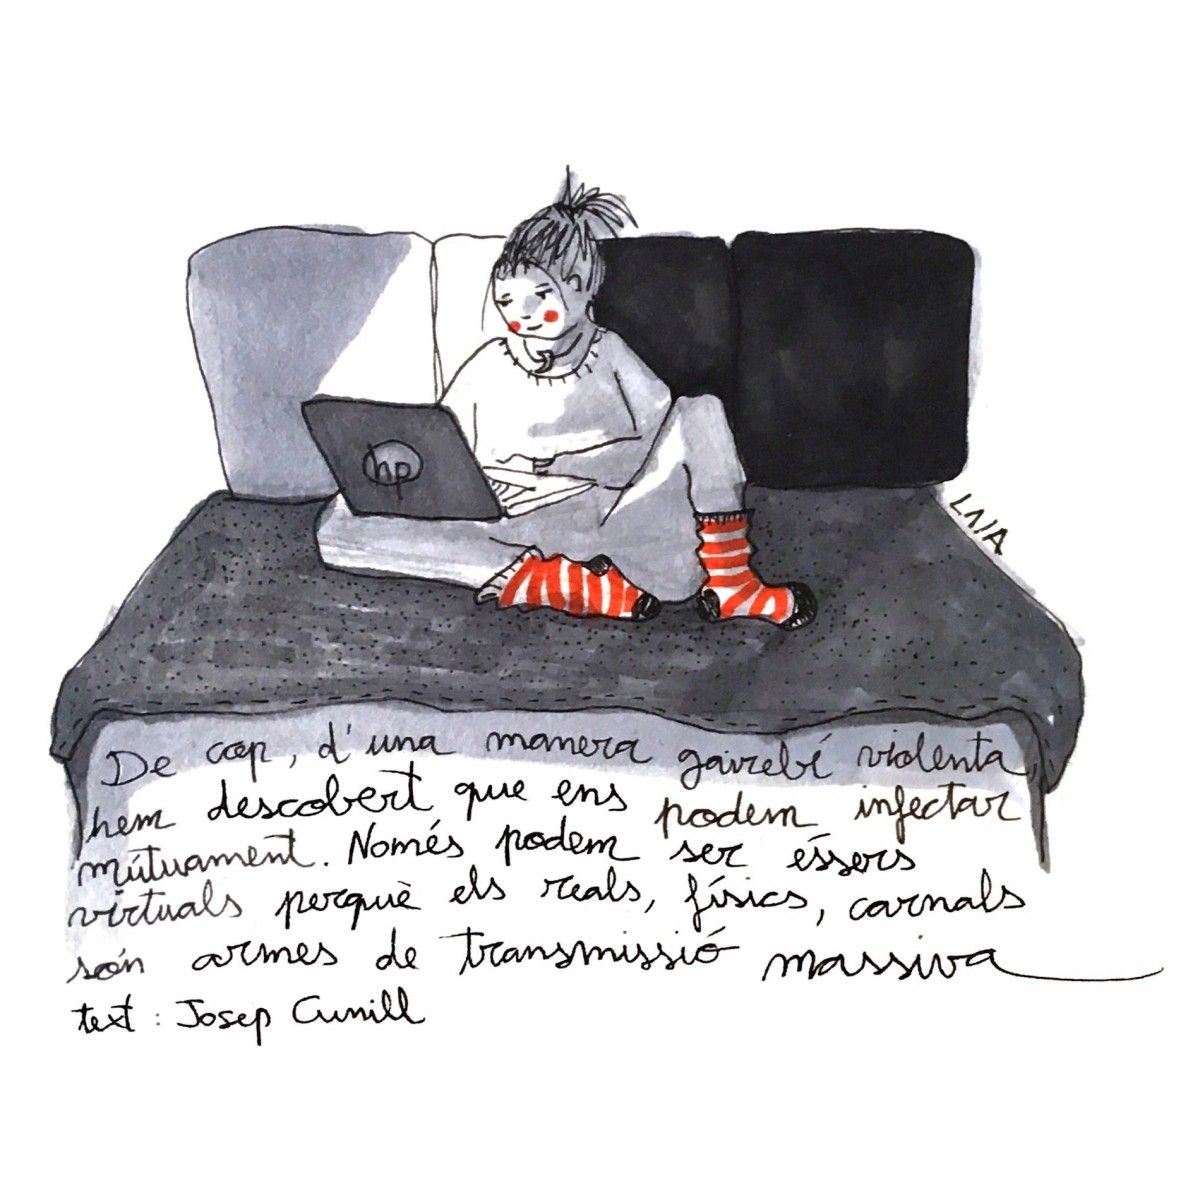 hp
LAIA
De cop, d'una manera gairebé violenta,
hem descobert que ens podem infectar
mútuament. Només podem ser éssers
virtuals perquè els reals, físics, carnals
són armes de transmissió massiva
text: Josep Cunill